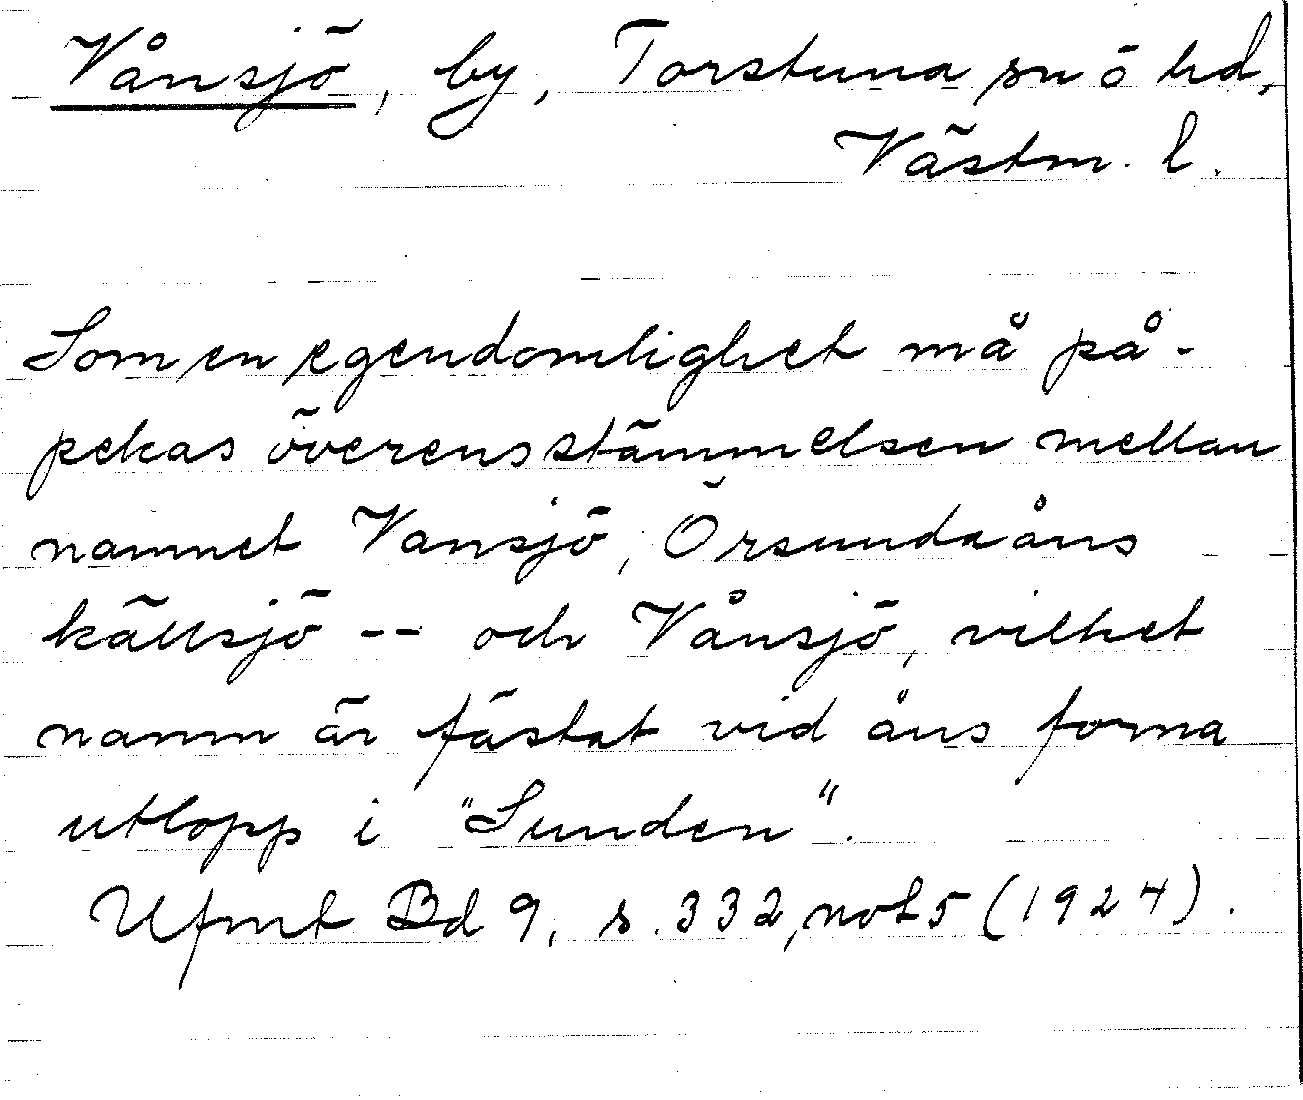 Vånsjö, by, Torstuna sn ö hd,
Västm. l.
Som en egendomlighet må på-
pekas överensstämmelsen mellan
namnet Vansjö, Örsundaåns
källsjö -- och Vånsjö, vilket
namn är fästat vid åns forna
utlopp i "Sunden".
Ufmt Bd 9, s. 332, not 5 (1924).